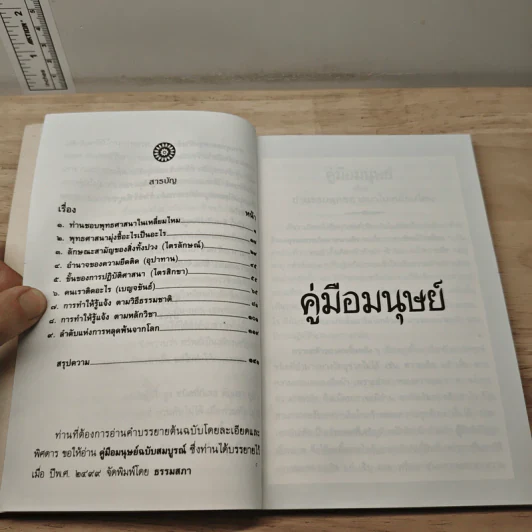 สารบัญ
เรื่อง หน้า
๑. ท่านชอบพุทธศาสนาในเหลี่ยมไหน ๑
๒. พุทธศาสนามุ่งชี้อะไรเป็นอะไร
๓. ลักษณะสามัญของสิ่งทั้งปวง (ไตรลักษณ์)
๔. อำนาจของความยึดติด (อุปาทาน)
๕. ขั้นของการปฏิบัติศาสนา (ไตรสิกขา)
๖. คนเราติดอะไร (เบญจขันธ์)
๗. การทำให้รู้แจ้ง ตามวิธีธรรมชาติ
๘. การทำให้รู้แจ้ง ตามหลักวิชา
๙. ลำดับแห่งการหลุดพ้นจากโลก
สรุปความ
ท่านที่ต้องการอ่านคำบรรยายต้นฉบับโดยละเอียดและ
พิศดาร ขอให้อ่าน คู่มือมนุษย์ฉบับสมบูรณ์ ซึ่งท่านได้บรรยายไว้
เมื่อ ปีพ.ศ. ๒๔๙๙ จัดพิมพ์โดย ธรรมสภา
คู่มือมนุษย์